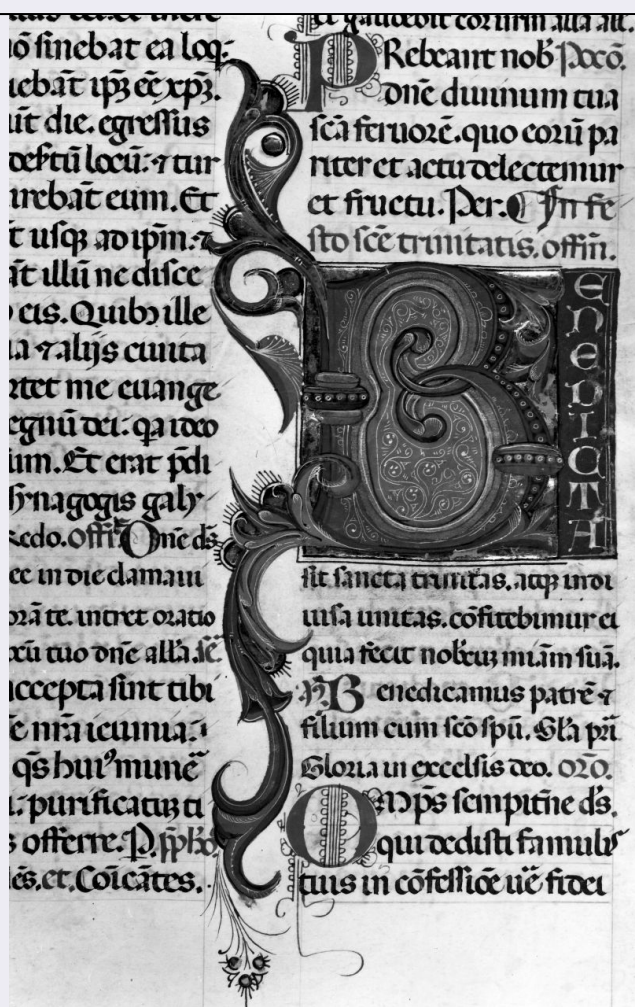 nō sinebat ea loq;
iebāt ipꝫ eē xpꝫ.
ūt die. egressus
desr̄tū locū: ⁊ tur
irebāt eum. Et
t usqꝫ ad ip̄m: ⁊
āt illū ne disce
eis. Quibꝫ ille
ia ⁊ alijs ciuita
rtet me euange
egnū dei: qa ideo
um. Et erat p̄di
synagogis galy
redo. offr̄ Dn̄e ds̄
ee in die clamaui
orā te. intret oratio
tuo dn̄e all̄a.
accepta sint tibi
nr̄a ieiunia:
qs̄ hui⁹ munē
purificatꝫ ti
offerre. P.
es. et. Cōicātes.
et gaudebit cor ur̄m all̄a all̄.
PRebeant nob̄ Pocō.
dn̄e diuinum tua
sc̄a feruorē. quo eorū pa
riter et actu delectemur
et fructu. Per. In fe
sto sc̄e trinitatis. offm̄.
BENEDICTA
sit sancta trinitas. atqꝫ indi
uisa unitas. cōfitebimur ei
quia fecit nob̄cuꝫ mīam suā.
Benedicamus patrē ⁊
filium cum sc̄o spū. Gl̄a pr̄i
Gloria in excelsis deo. oro.
OMp̄s sempit̄ne ds̄.
qui dedisti famulis
tuis in cōfessiōe uē fidei